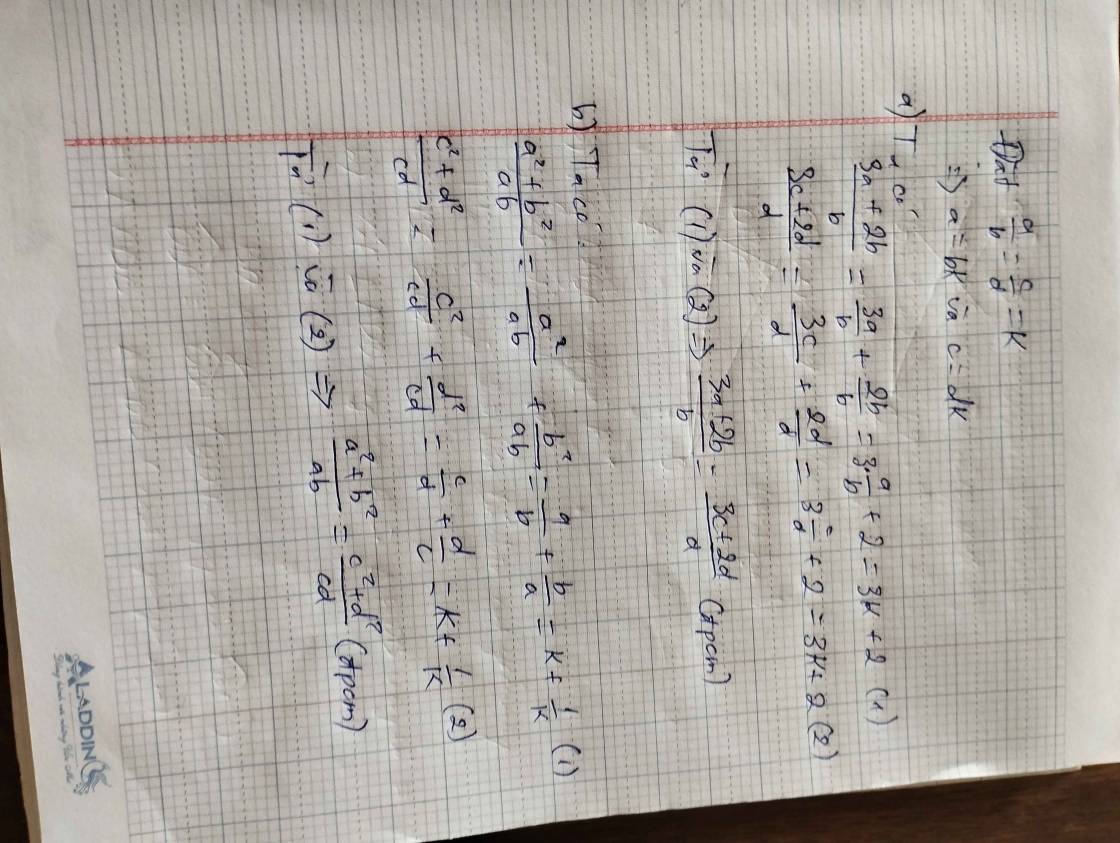 Đặt a/b = c/d = k
=> a = bk và c = dk
a) Ta có
(3a + 2b)/b = 3a/b + 2b/b = 3·a/b + 2 = 3k + 2 (1)
(3c + 2d)/d = 3c/d + 2d/d = 3 c/d + 2 = 3k + 2 (2)
Từ (1) và (2) => (3a + 2b)/b = (3c + 2d)/d (đpcm)
b) Ta có:
(a² + b²)/ab = a²/ab + b²/ab = a/b + b/a = k + 1/k (1)
(c² + d²)/cd = c²/cd + d²/cd = c/d + d/c = k + 1/k (2)
Từ (1) và (2) => (a² + b²)/ab = (c² + d²)/cd (đpcm)
ALADDIN